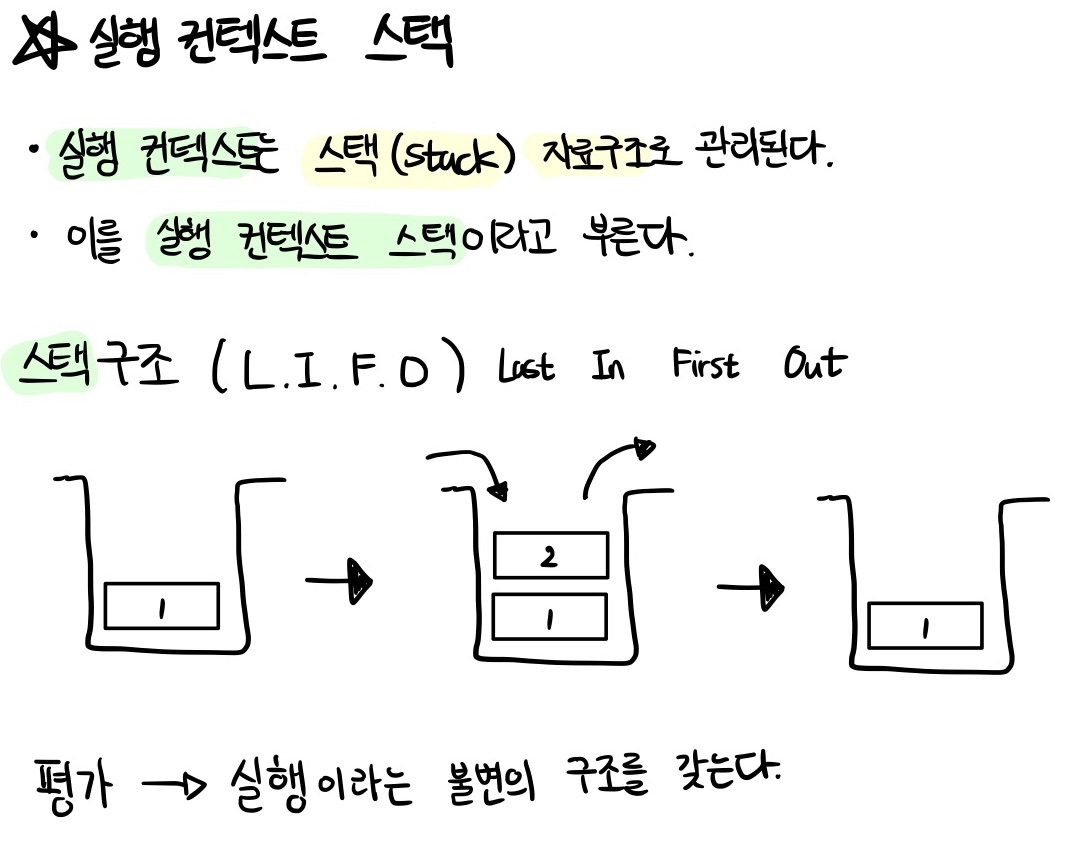 실행 컨텍스트 스택
· 실행 컨텍스트는 스택(stack) 자료구조로 관리된다.
· 이를 실행 컨텍스트 스택이라고 부른다.
스택구조 (L.I.F.O) Last In First Out
1 2 1
1
평가 → 실행이라는 불변의 구조를 갖는다.